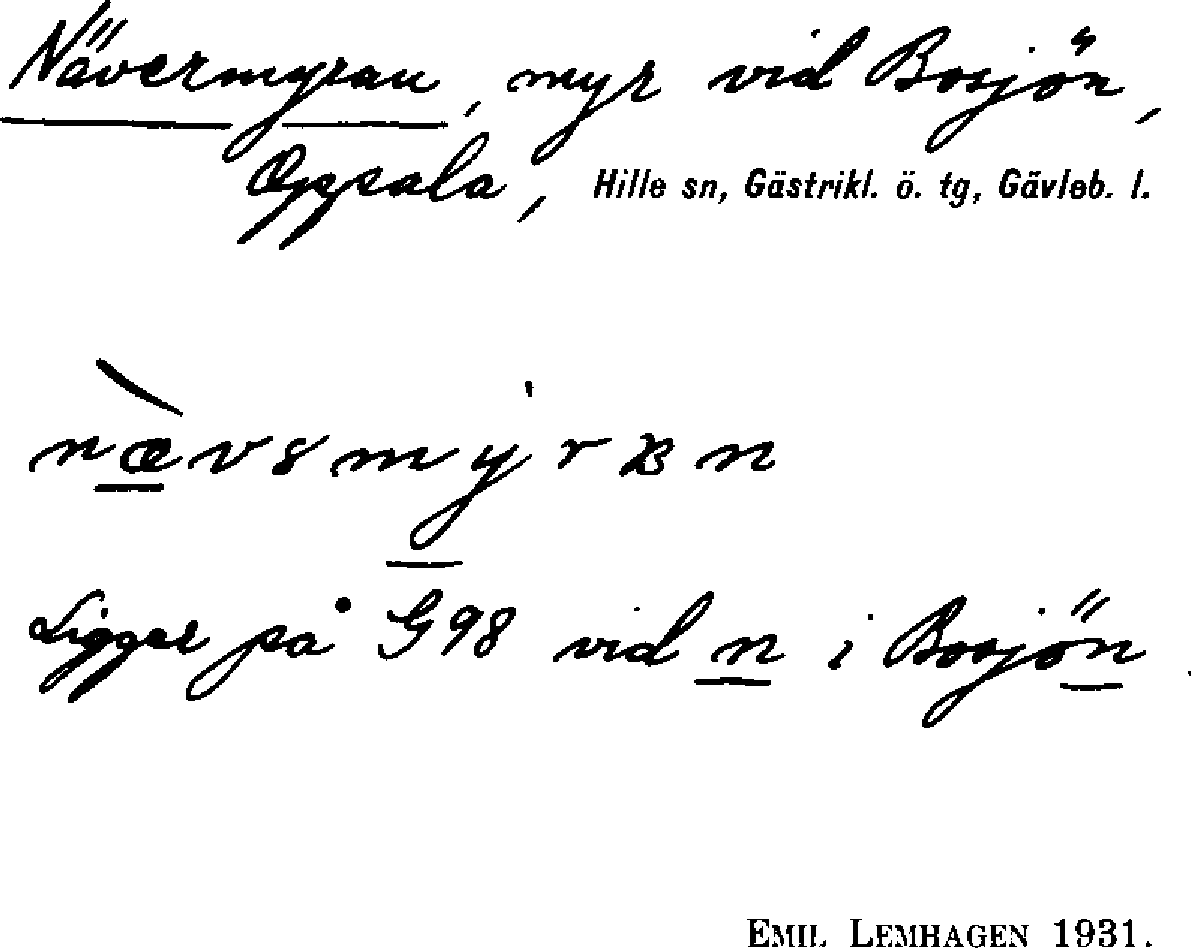 Nävermyran, myr vid Bosjön,
Oppsala, Hille sn, Gästrikl. ö. tg, Gävleb. l.
nævsmyrʙn
Ligger på G98 vid n i Bosjön.
EMIL LEMHAGEN 1931.